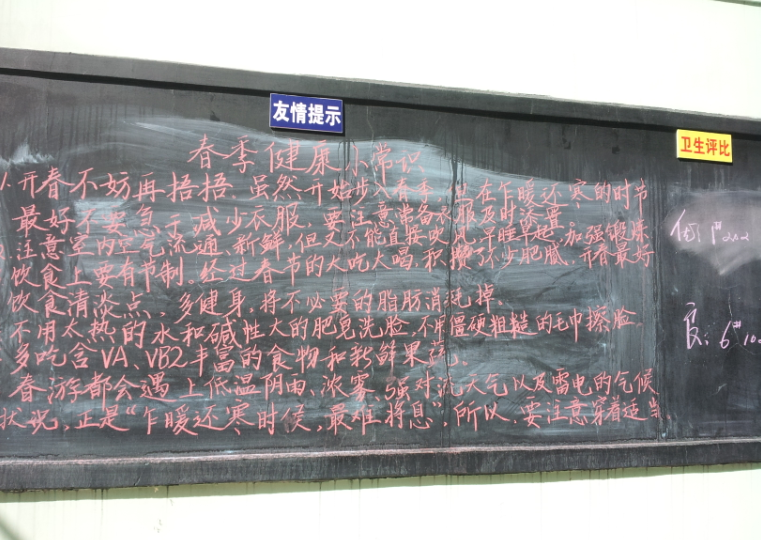 友情提示
卫生评比
春季健康小常识
1.开春不妨再捂捂 虽然开始步入春季 但在乍暖还寒的时节
最好不要急于减少衣服，要注意常备衣服及时添置。
注意室内空气流通、新鲜，但又不能直接吹风，早睡早起，加强锻炼
饮食上要有节制。经过春节的大吃大喝，积攒了不少肥腻，开春最好
饮食清淡点，多健身，将不必要的脂肪消耗掉。
不用太热的水和碱性大的肥皂洗脸，不用僵硬粗糙的毛巾擦脸
多吃含VA、VB2丰富的食物和新鲜果蔬。
春游都会遇上低温阴雨、浓雾、强对流天气以及雷电的气候
状况，正是“乍暖还寒时候，最难将息”，所以，要注意穿着适当
良：6#